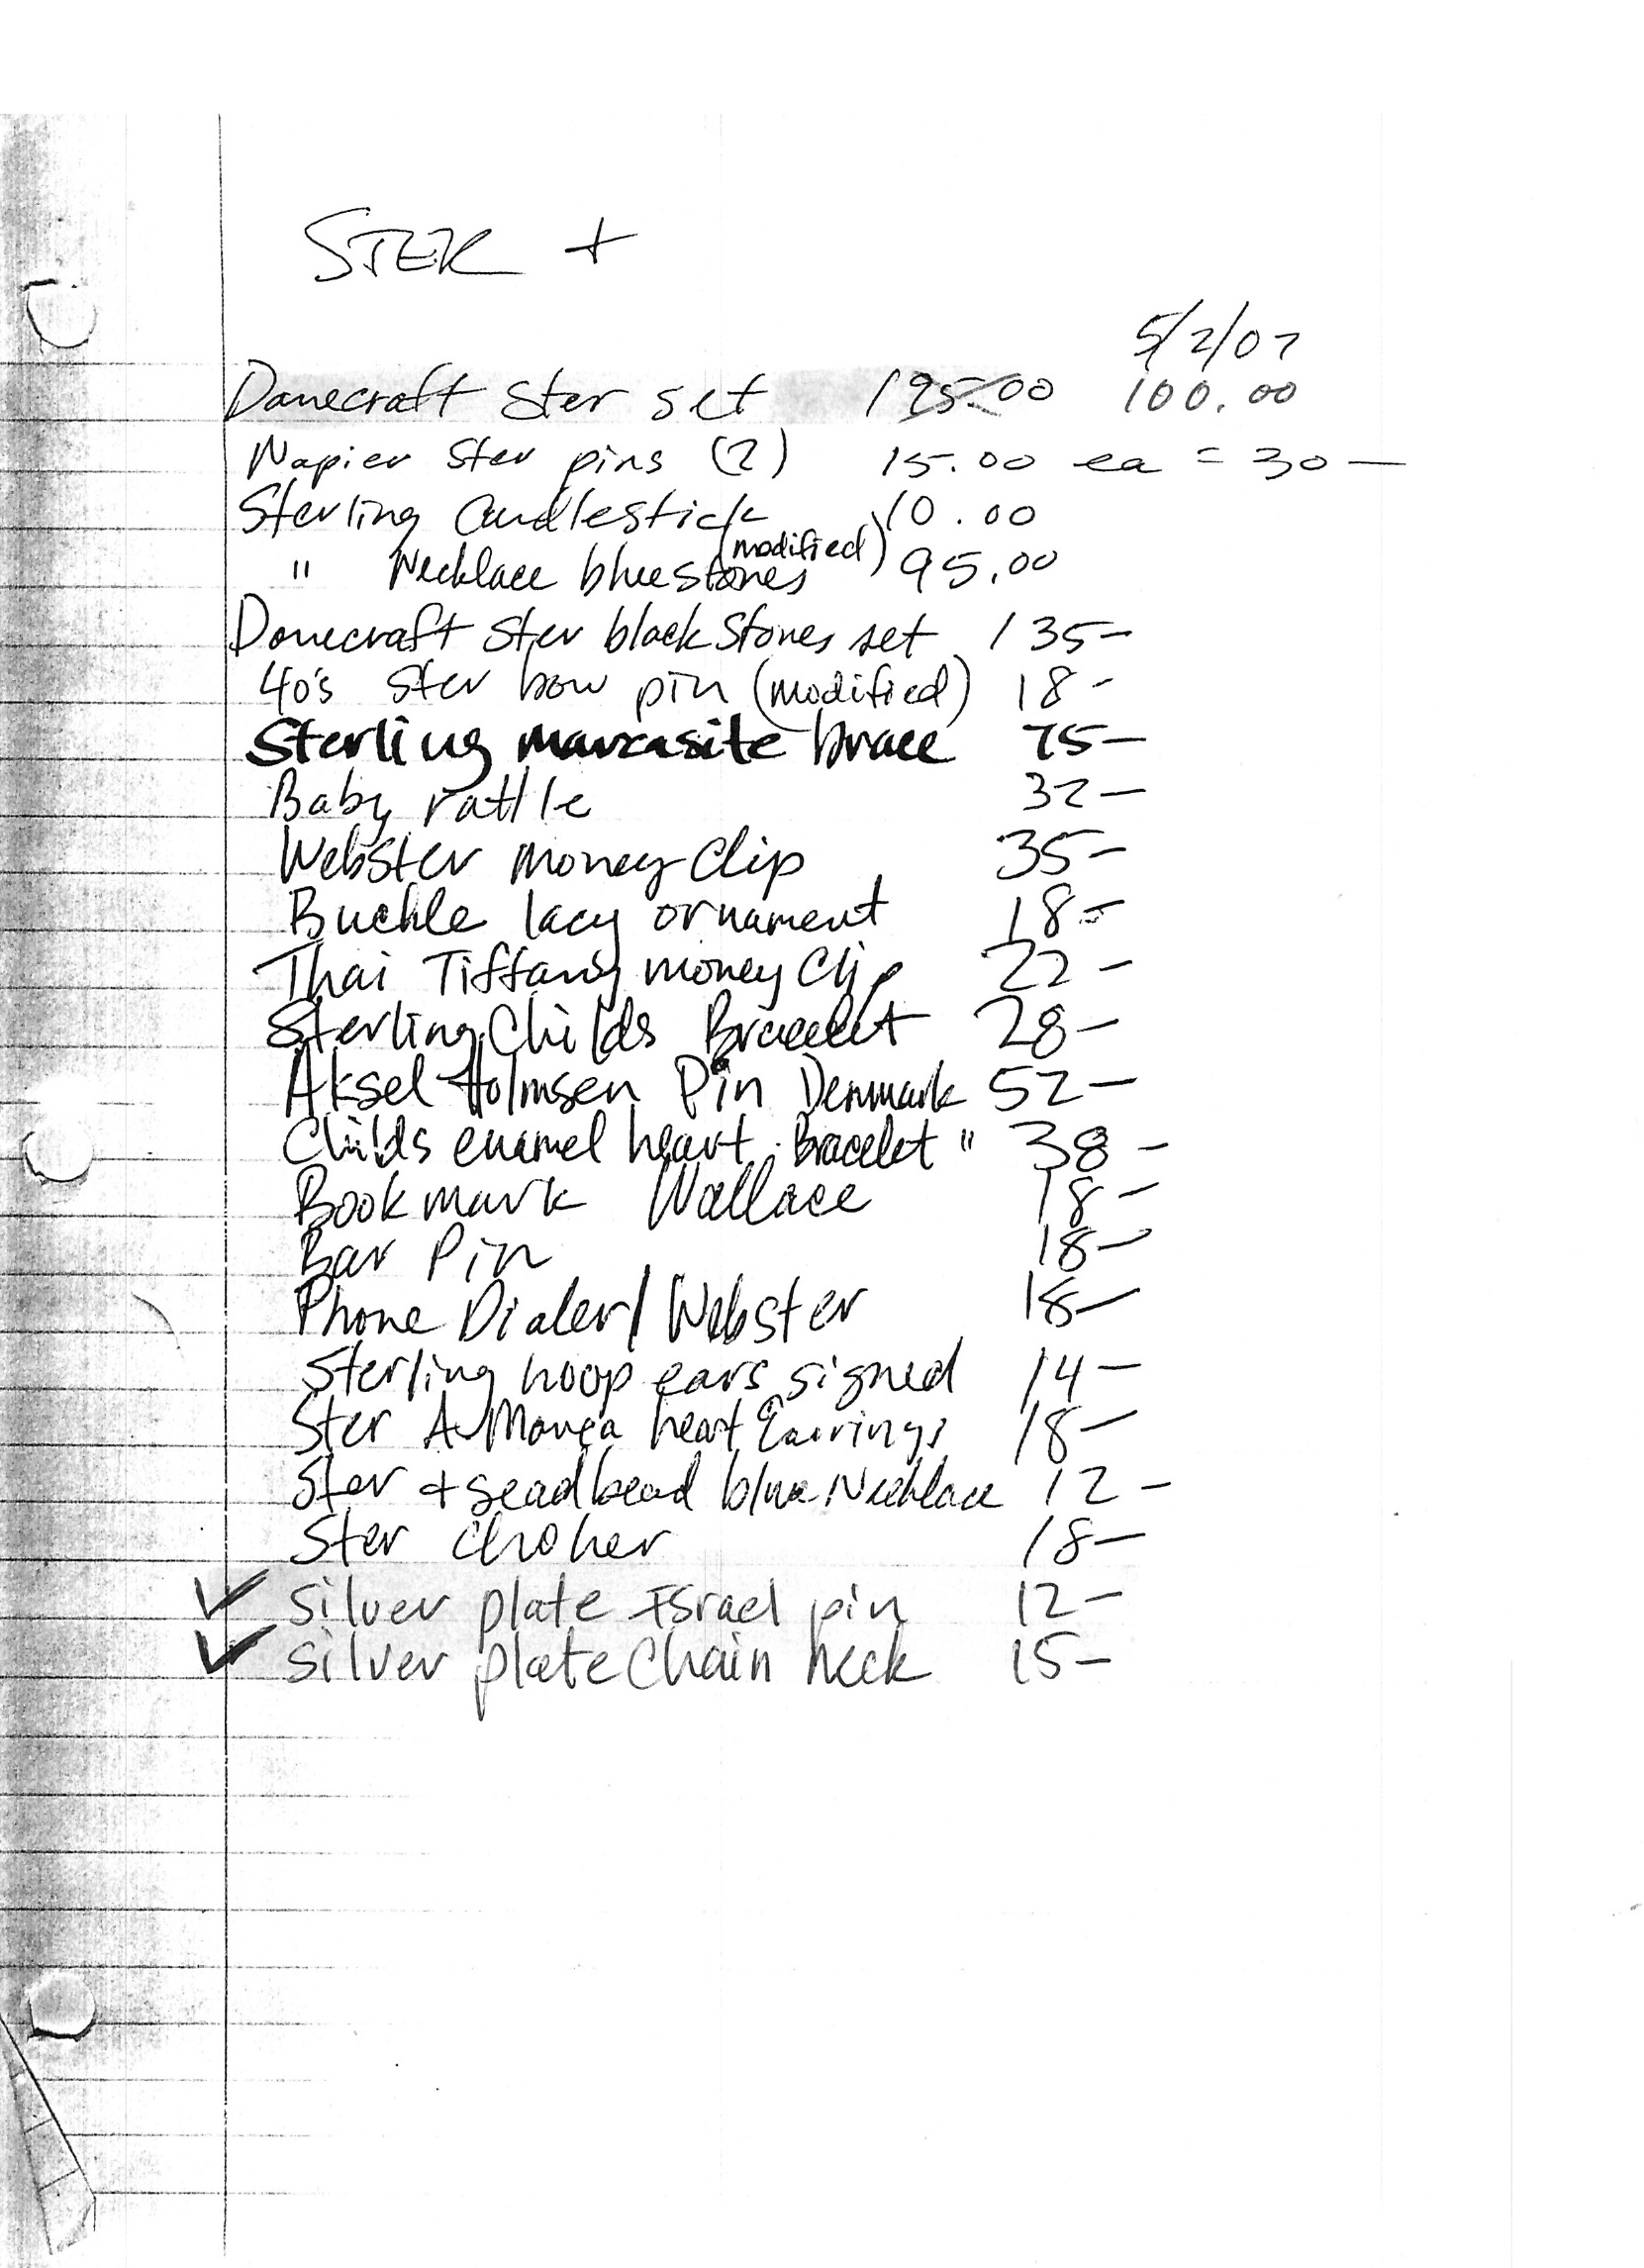 STER +
5/2/07
Danecraft Ster set 195.00 100.00
Napier Ster pins (2) 15.00 ea = 30 —
Sterling Candlestick 10.00
" Necklace blue stones (modified) 95.00
Danecraft Ster black Stones set 135 —
40's Ster bow pin (modified) 18 -
Sterling marcasite brace 75 —
Baby rattle 32 —
Webster Money Clip 35 —
Buckle lacy ornament 18 -
Thai Tiffany money Clip 22 —
Sterling Childs Bracelet 28 —
Aksel Holmsen Pin Denmark 52 —
Childs enamel heart Bracelet " 38 —
Bookmark Wallace 18 —
Bar Pin 18 —
Phone Dialer / Webster 18 —
Sterling hoop ears signed 14 —
Ster A heart Earrings 18 —
Ster + seadbead blue Necklace 12 —
Ster Choker 18 —
✓ Silver plate Israel pin 12 —
✓ Silver plate Chain neck 15 —